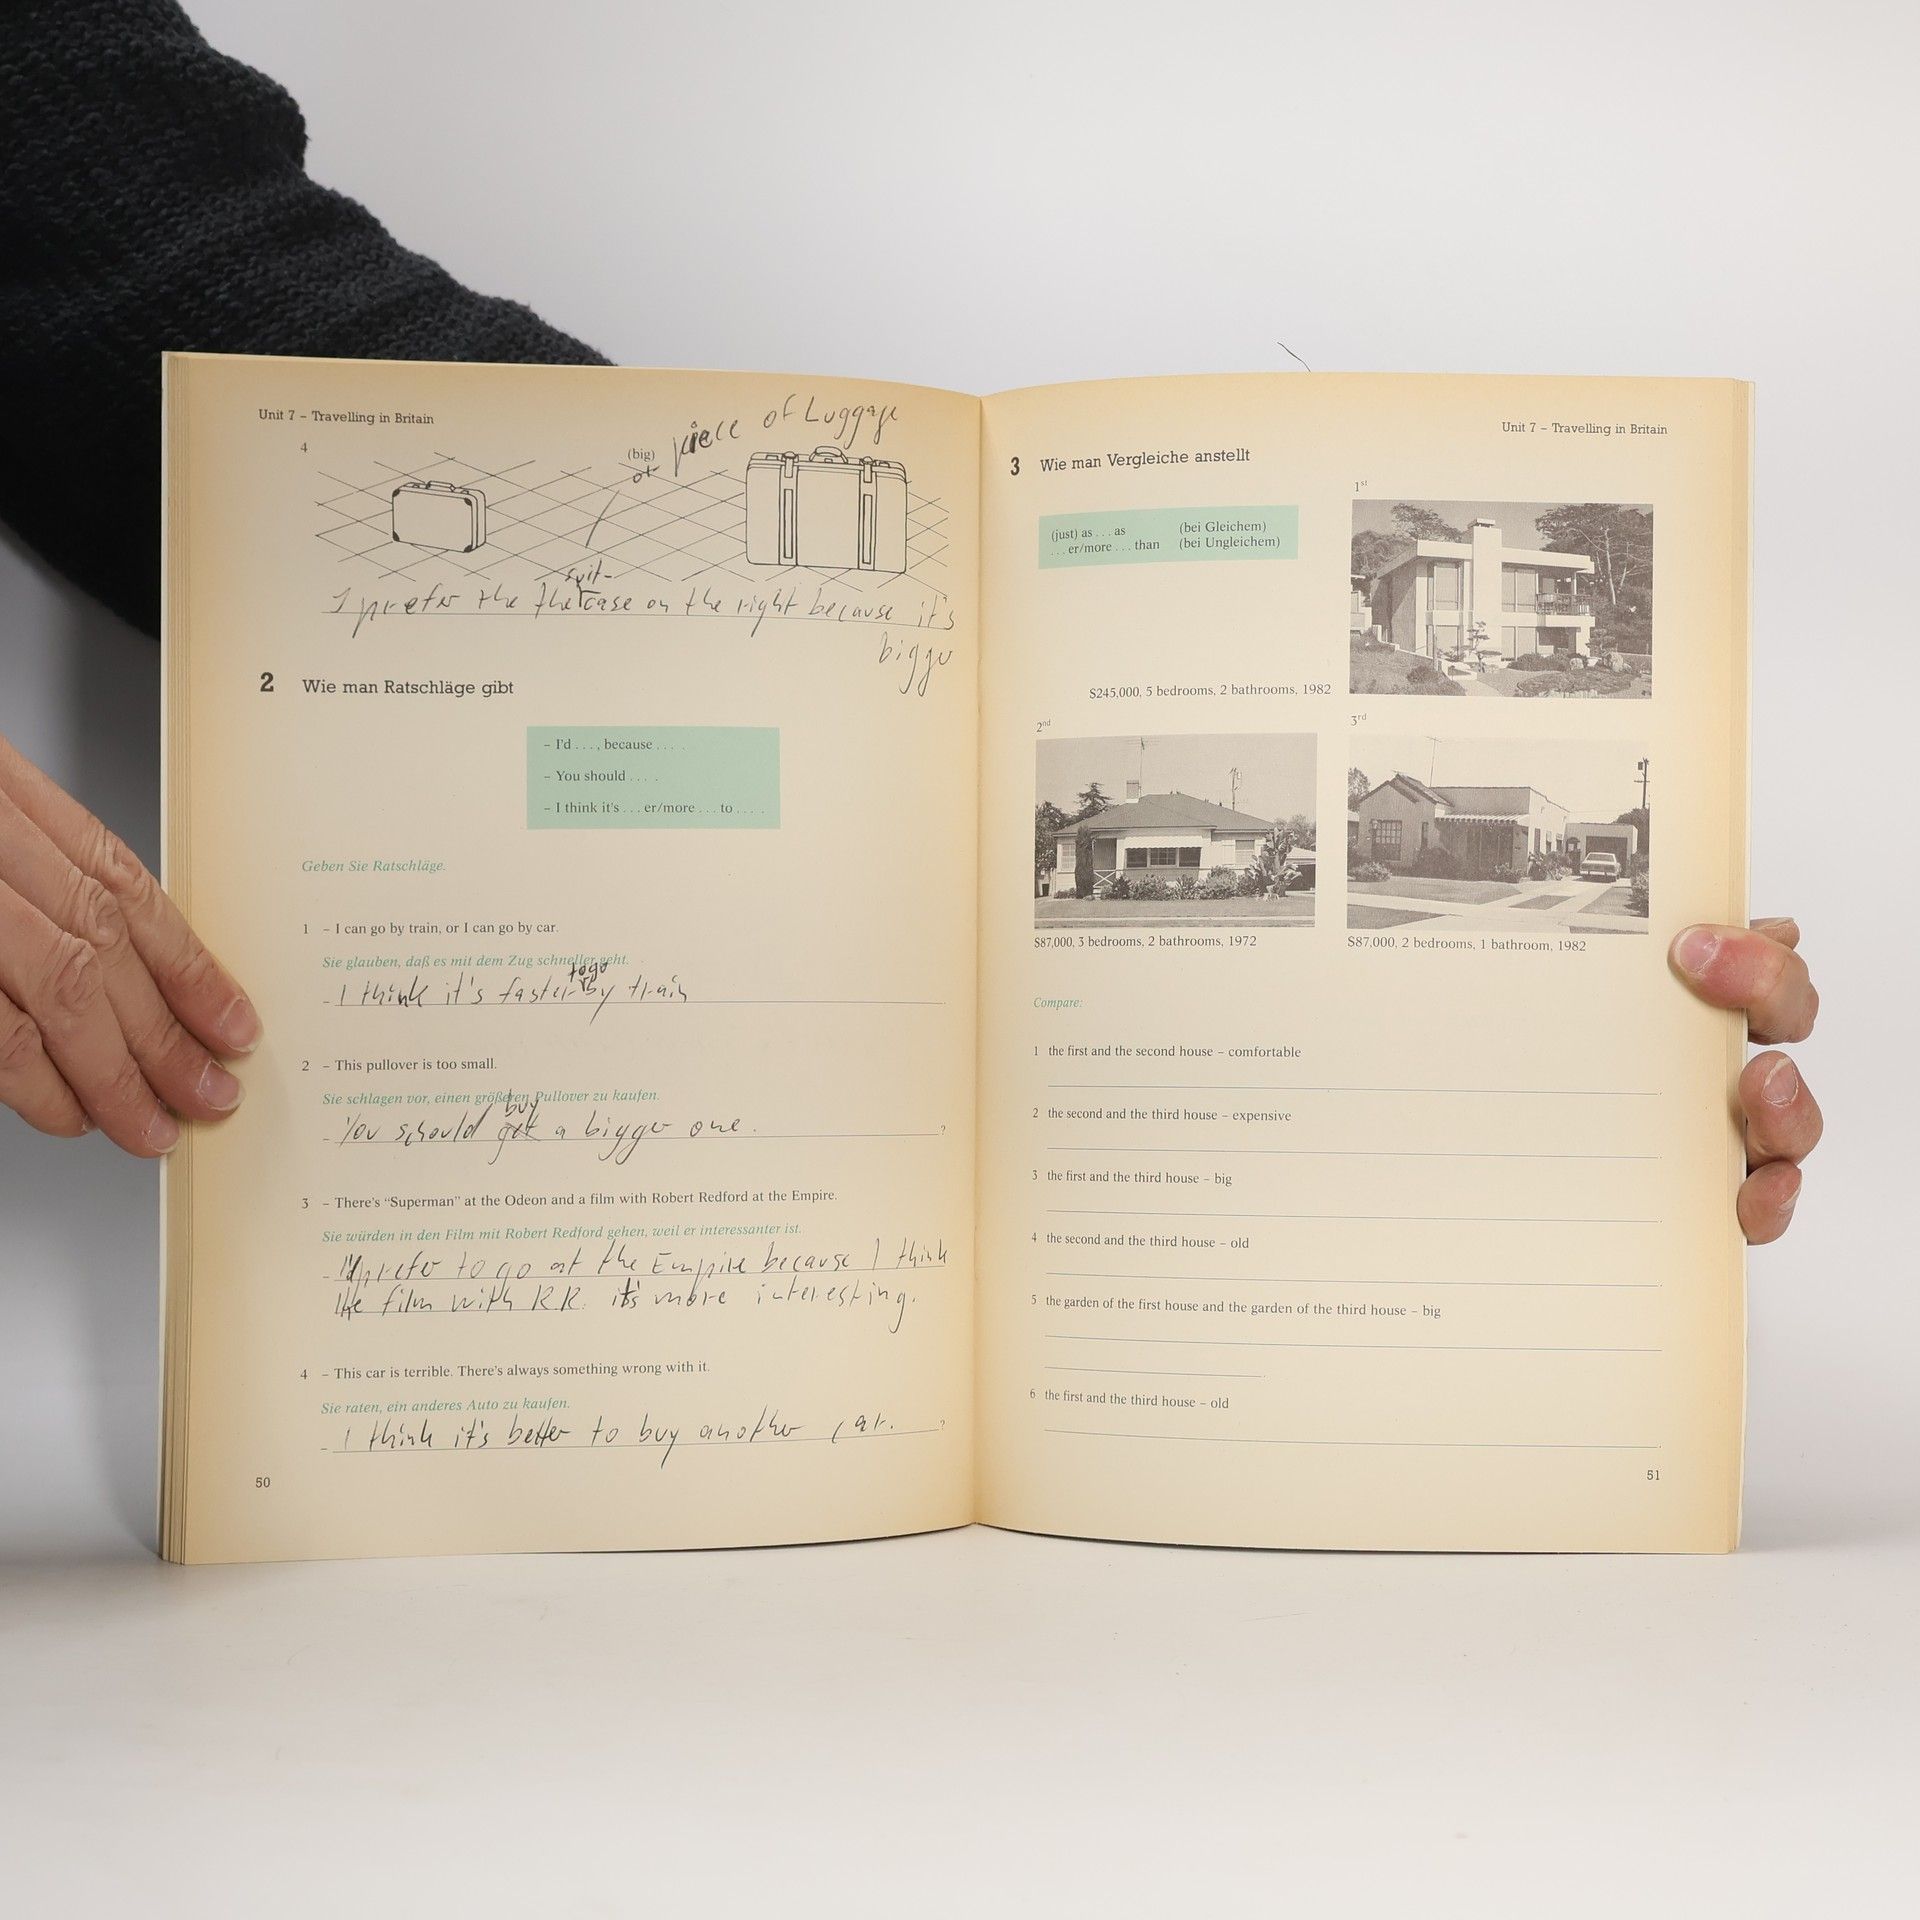 Unit 7 – Travelling in Britain
4
(big)
piece of Luggage
suit-
I prefer the the case on the right because it's
bigger
2 Wie man Ratschläge gibt
– I'd . . . , because . . . .
– You should . . . .
– I think it's . . . er/more . . . to . . . .
Geben Sie Ratschläge.
1 – I can go by train, or I can go by car.
Sie glauben, daß es mit dem Zug schneller geht.
to go
– I think it's faster by train
2 – This pullover is too small.
Sie schlagen vor, einen größeren Pullover zu kaufen.
buy
– You should get a bigger one. ?
3 – There's "Superman" at the Odeon and a film with Robert Redford at the Empire.
Sie würden in den Film mit Robert Redford gehen, weil er interessanter ist.
– I'd prefer to go at the Empire because I think
the film with R.R. it's more interesting.
4 – This car is terrible. There's always something wrong with it.
Sie raten, ein anderes Auto zu kaufen.
– I think it's better to buy another car. ?
50
Unit 7 – Travelling in Britain
3 Wie man Vergleiche anstellt
(just) as . . . as (bei Gleichem)
. . . er/more . . . than (bei Ungleichem)
1st
$245,000, 5 bedrooms, 2 bathrooms, 1982
2nd
3rd
$87,000, 3 bedrooms, 2 bathrooms, 1972
$87,000, 2 bedrooms, 1 bathroom, 1982
Compare:
1 the first and the second house – comfortable
2 the second and the third house – expensive
3 the first and the third house – big
4 the second and the third house – old
5 the garden of the first house and the garden of the third house – big
6 the first and the third house – old
51